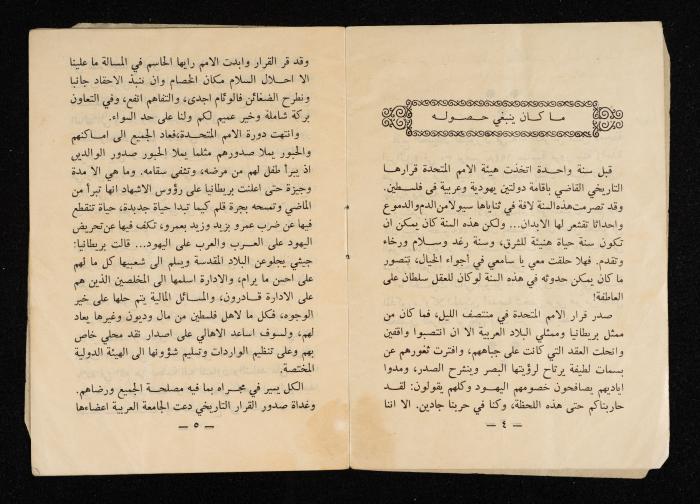 ما كان ينبغي حصوله
قبل سنة واحدة اتخذت هيئة الامم المتحدة قرارها
التاريخي القاضي باقامة دولتين يهودية وعربية في فلسطين.
وقد تصرمت هذه السنة لافة في ثناياها سيولا من الدم والدموع
واحداثا تقشعر لها الابدان... ولكن هذه السنة كان يمكن ان
تكون سنة حياة هنيئة للشرق، وسنة رغد وسلام ورخاء
وتقدم. فهلا حلقت معي يا سامعي في أجواء الخيال، نتصور
ما كان يمكن حدوثه في هذه السنة لو كان للعقل سلطان على
العاطفة!
صدر قرار الامم المتحدة في منتصف الليل، فما كان من
ممثل بريطانيا وممثلي البلاد العربية الا ان انتصبوا واقفين
وانحلت العقد التي كانت على جباههم، وافترت ثغورهم عن
بسمات لطيفة يرتاح لرؤيتها البصر وينشرح الصدر، ومدوا
اياديهم يصافحون خصومهم اليهود وكلهم يقولون: لقد
حاربناكم حتى هذه اللحظة، وكنا في حربنا جادين. الا اننا
— ٤ —
وقد قر القرار وابدت الامم رايها الحاسم في المسالة ما علينا
الا احلال السلام مكان الخصام وان ننبذ الاحقاد جانبا
ونطرح الضغائن فالوئام اجدى، والتفاهم انفع، وفي التعاون
بركة شاملة وخير عميم لكم ولنا على حد السواء.
وانتهت دورة الامم المتحدة، فعاد الجميع الى اماكنهم
والحبور يملا صدورهم مثلما يملا الحبور صدور الوالدين
اذ يبرأ طفل لهم من مرضه، وتشفى سقامه. وما هي الا مدة
وجيزة حتى اعلنت بريطانيا على رؤوس الاشهاد انها تبرأ من
الماضي وتمسحه بجرة قلم كيما تبدا حياة جديدة، حياة تنقطع
فيها عن ضرب عمرو بزيد وزيد بعمرو، تكف فيها عن تحريض
اليهود على العرب والعرب على اليهود... قالت بريطانيا:
جيشي يجلو عن البلاد المقدسة ويسلم الى شعبيها كل ما لهم
على احسن ما يرام، والادارة اسلمها الى المخلصين الذين هم
على الادارة قادرون، والمسائل المالية يتم حلها على خير
الوجوه، فكل ما لاهل فلسطين من مال وديون وغيرها يعاد
لهم، ولسوف اساعد الاهالي على اصدار نقد محلي خاص
بهم وعلى تنظيم الواردات وتسليم شؤونها الى الهيئة الدولية
المختصة.
الكل يسير في مجراه بما فيه مصلحة الجميع ورضاهم.
وغداة صدور القرار التاريخي دعت الجامعة العربية اعضاءها
— ٥ —